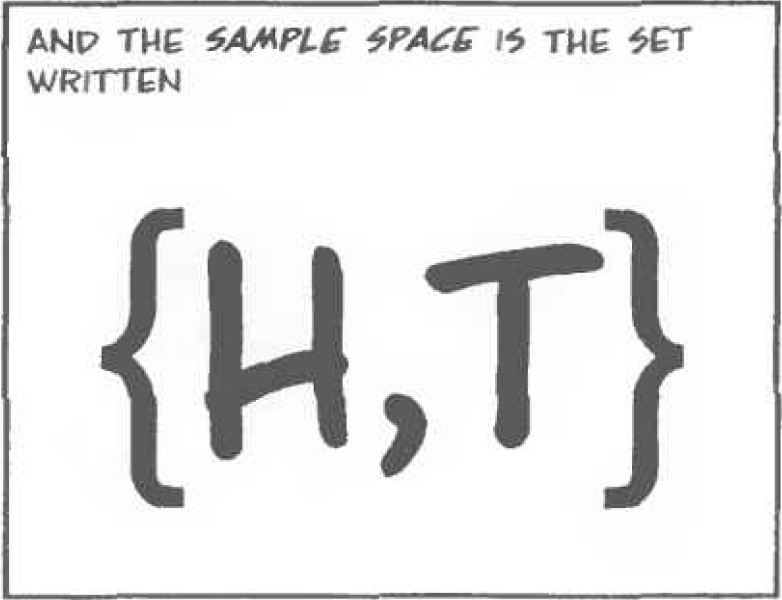 AND THE SAMPLE SPACE IS THE SET
WRITTEN
{H,T}